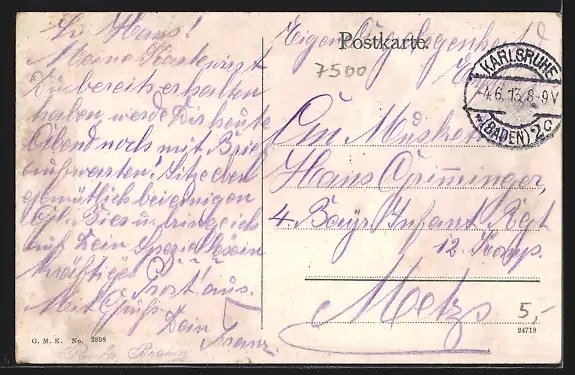 L. Hans!
Meine Karte wirst
Du bereits erhalten
haben, werde Dir heute
Abend noch mit Brief
aufwarten! Sitze eben
gemütlich bei einigen
Bier u. bringe ich
auf Dein spezielles ein
kräftiges Prost aus.
Mit Gruß
Dein
Franz.
Postkarte.
7500
KARLSRUHE
4.6.13. 8-9V
*(BADEN) 2c
An Musket
Hans Grimminger,
4. Bayr. Infant. Regt
12. Komp.
Metz
5,-
G. M. K. No. 2898
24718